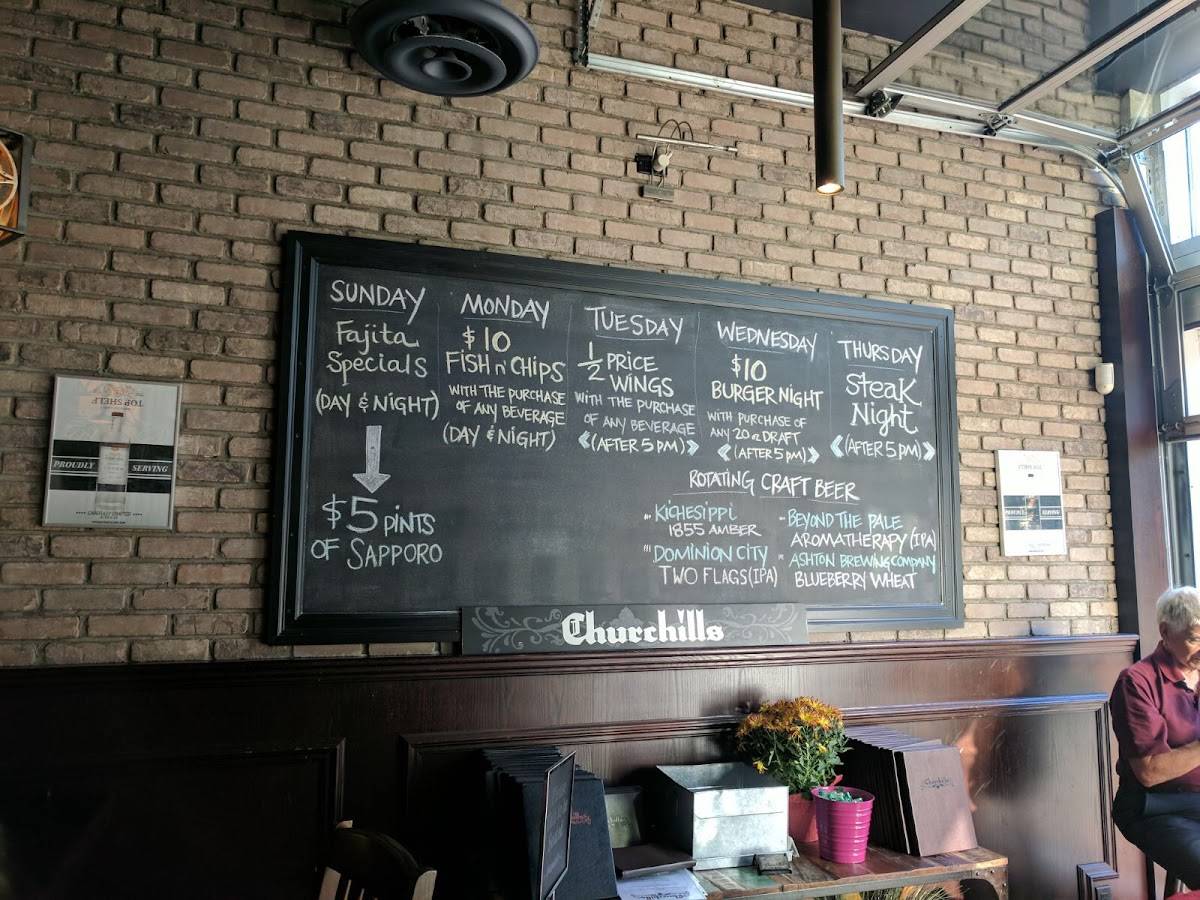 SUNDAY
Fajita
Specials
(DAY & NIGHT)
$5 PINTS
OF SAPPORO
MONDAY
$10
FISH n' CHIPS
WITH THE PURCHASE
OF ANY BEVERAGE
(DAY & NIGHT)
TUESDAY
1/2 PRICE
WINGS
WITH THE PURCHASE
OF ANY BEVERAGE
(AFTER 5 PM)
WEDNESDAY
$10
BURGER NIGHT
WITH PURCHASE OF
ANY 20 oz DRAFT
(AFTER 5 PM)
THURSDAY
Steak
Night
(AFTER 5 PM)
ROTATING CRAFT BEER
KICHESIPPI
1855 AMBER
DOMINION CITY
TWO FLAGS (IPA)
BEYOND THE PALE
AROMATHERAPY (IPA)
ASHTON BREWING COMPANY
BLUEBERRY WHEAT
Churchills
TOP SHELF
PROUDLY SERVING
PROUDLY SERVING
Churchills